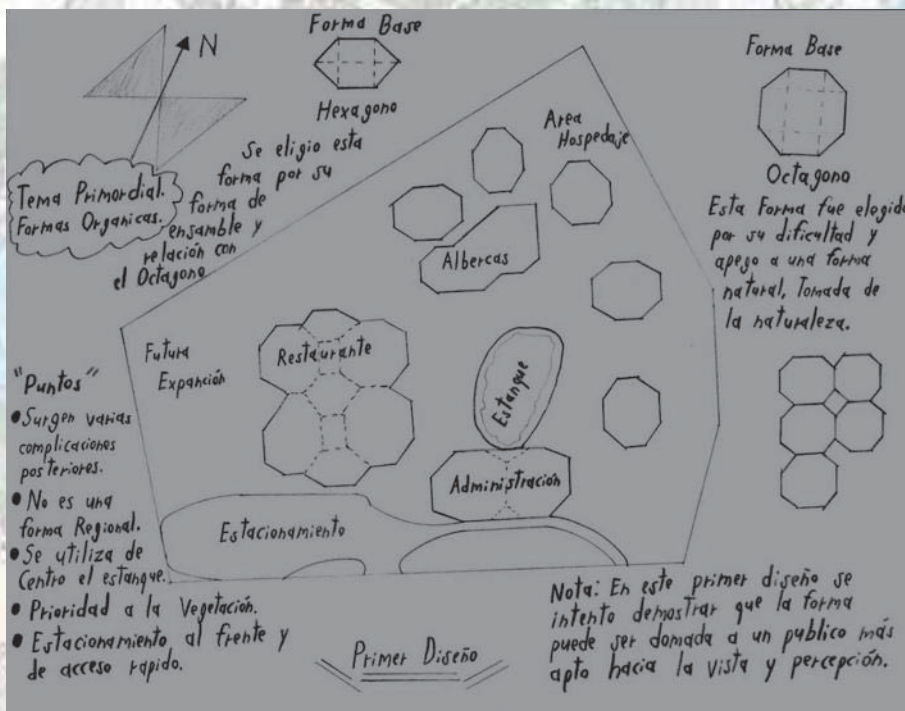 N
Forma Base
Hexagono
Se eligio esta
forma por su
forma de
ensamble y
relación con
el Octagono
Tema Primordial.
Formas Organicas.
Area
Hospedaje
Albercas
Forma Base
Octagono
Esta Forma fue elegida
por su dificultad y
apego a una forma
natural, Tomada de
la naturaleza.
Futura
Expanción
Restaurante
Estanque
Administración
Estacionamiento
"Puntos"
• Surgen varias
complicaciones
posteriores.
• No es una
forma Regional.
• Se utiliza de
Centro el estanque.
• Prioridad a la Vegetación.
• Estacionamiento al frente y
de acceso rapido.
Primer Diseño
Nota: En este primer diseño se
intento demostrar que la forma
puede ser domada a un publico más
apto hacia la vista y percepción.